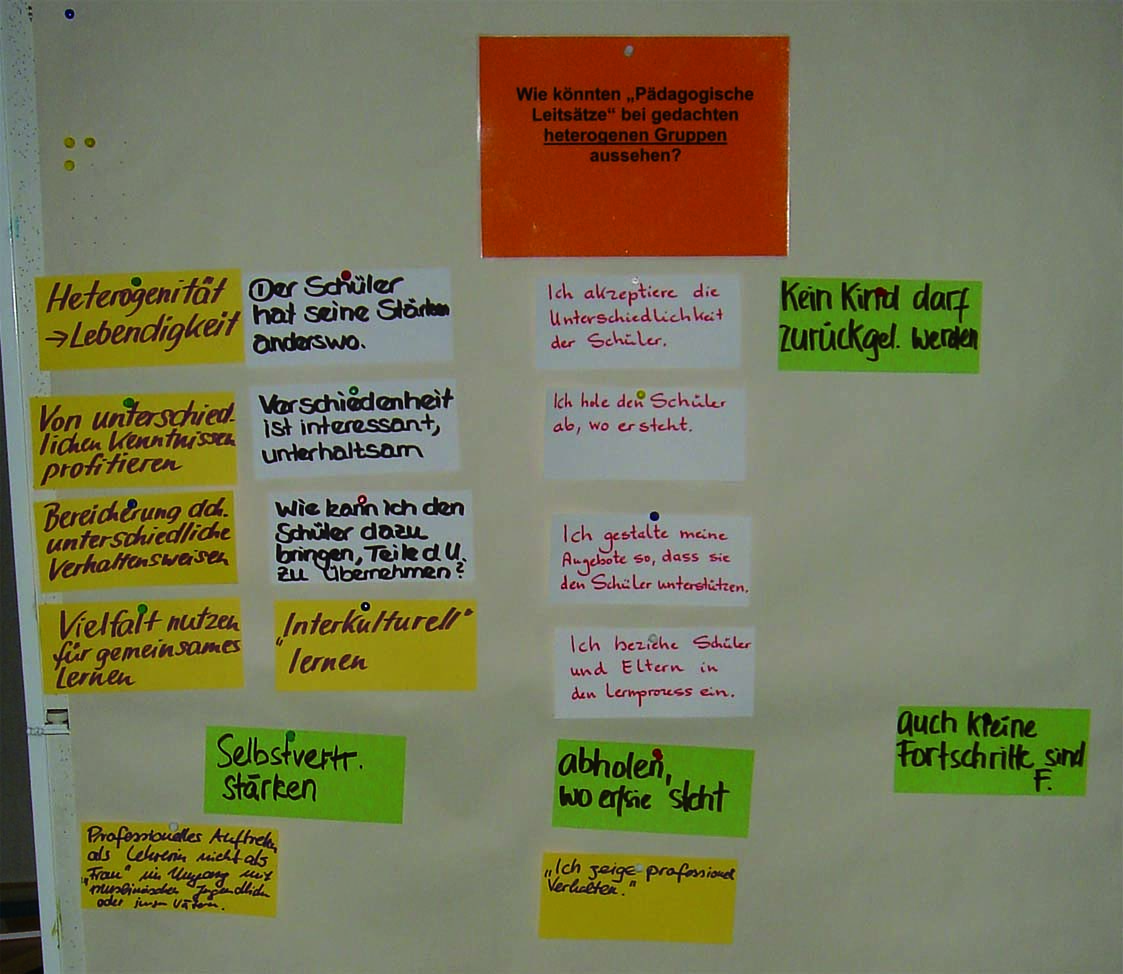 Wie könnten „Pädagogische
Leitsätze“ bei gedachten
heterogenen Gruppen
aussehen?
Heterogenität
→ Lebendigkeit
Von unterschied-
lichen Kenntnissen
profitieren
Bereicherung dch.
unterschiedliche
Verhaltensweisen
Vielfalt nutzen
für gemeinsames
Lernen
① Der Schüler
hat seine Stärken
anderswo.
Verschiedenheit
ist interessant,
unterhaltsam
Wie kann ich den
Schüler dazu
bringen, Teile d. U.
zu übernehmen?
„Interkulturell“
lernen
Ich akzeptiere die
Unterschiedlichkeit
der Schüler.
Ich hole den Schüler
ab, wo er steht.
Ich gestalte meine
Angebote so, dass sie
den Schüler unterstützen.
Ich beziehe Schüler
und Eltern in
den Lernprozess ein.
Kein Kind darf
zurückgel. werden
Selbstvertr.
stärken
abholen,
wo er/sie steht
auch kleine
Fortschritte sind
F.
Professionelles Auftreten
als Lehrerin nicht als
„Frau“ im Umgang mit
muslimischen Jugendlichen
oder Vätern.
„Ich zeige professionell
Verhalten.“